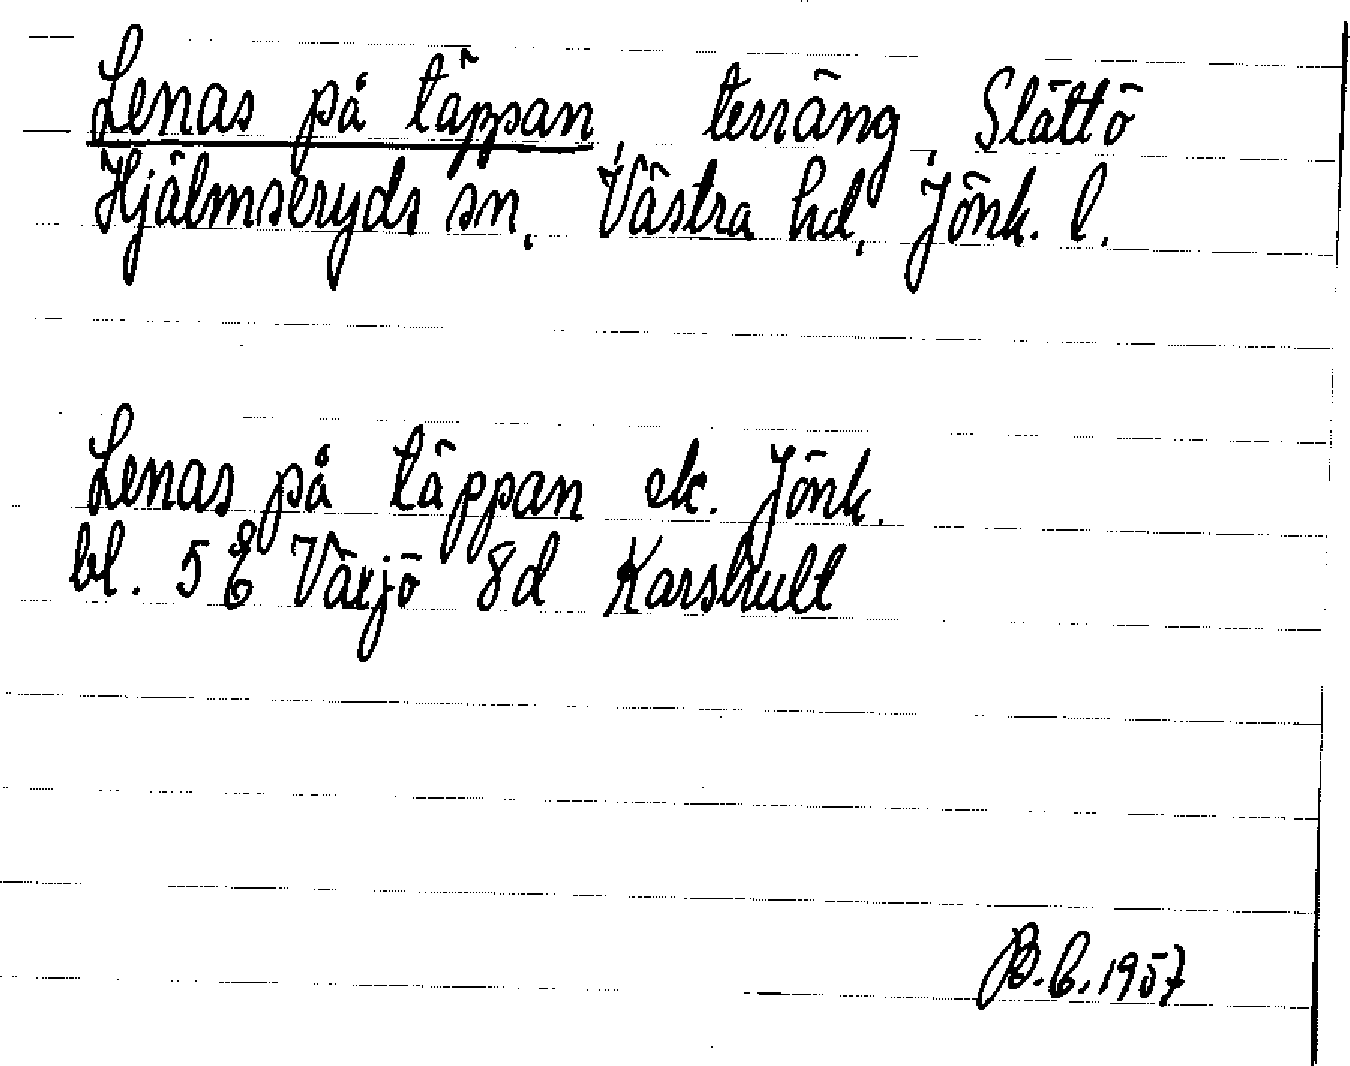 Lenas på täppan, terräng, Slättö
Hjälmseryds sn, Västra hd, Jönk. l.
Lenas på täppan ek. Jönk.
bl. 5 E Växjö 8d Karshult
B.E. 1957